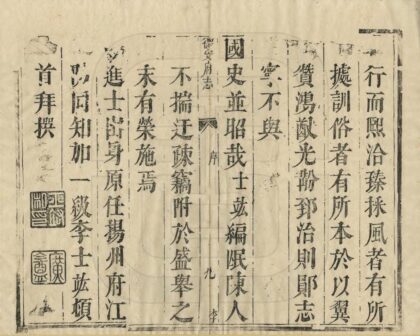 行而熙洽臻採風者有所
據訓俗者有所本於以翼
贊鴻猷光黼郅治則鄖志
寧不與
國史並昭哉士竑編氓陳人
安府志 序 九
不揣迂疎竊附於盛舉之
末有榮施焉
進士出身原任揚州府江
同知加一級李士竑頓
首拜撰